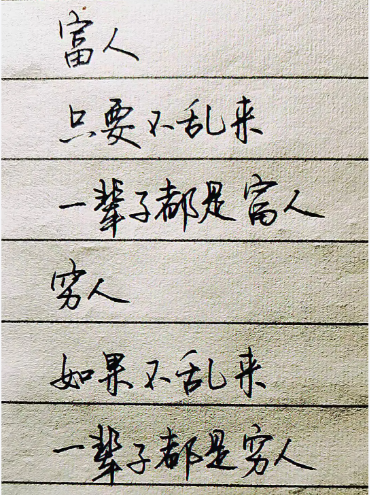 富人
只要不乱来
一辈子都是富人
穷人
如果不乱来
一辈子都是穷人